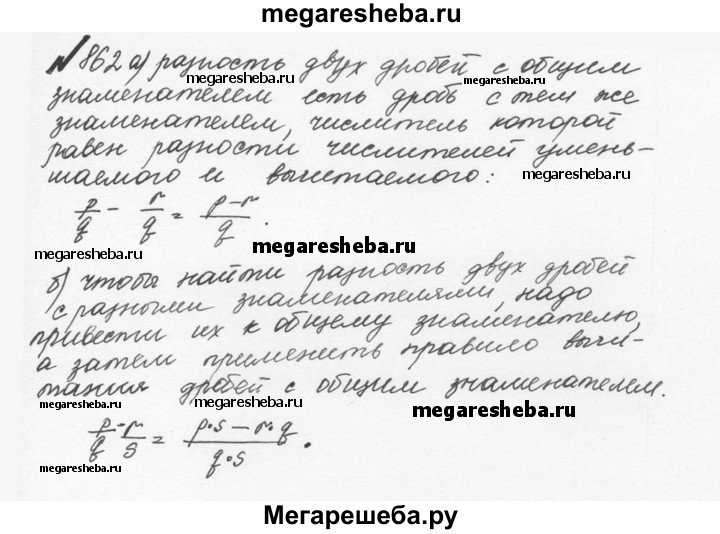 megaresheba.ru
№862 а) разность двух дробей с общим
megaresheba.ru megaresheba.ru
знаменателем есть дробь с тем же
знаменателем, числитель которой
равен разности числителей умень-
шаемого и вычитаемого:
megaresheba.ru
p/q - r/q = p-r/q.
megaresheba.ru
б) чтобы найти разность двух дробей
с разными знаменателями, надо
привести их к общему знаменателю,
а затем применить правило вычи-
тания дробей с общим знаменателем.
megaresheba.ru megaresheba.ru megaresheba.ru
p/q - r/s = p·s - r·q/q·s.
megaresheba.ru
Мегарешеба.ру